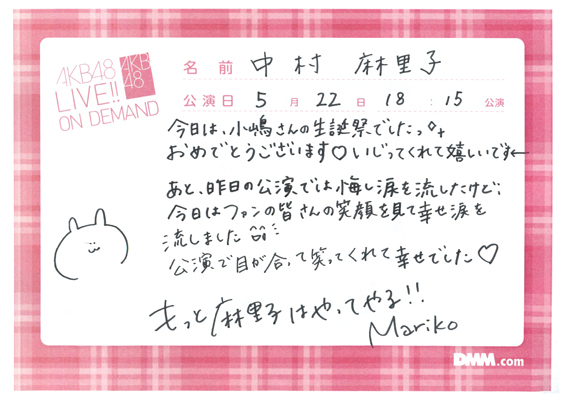 AKB48
LIVE!!
ON DEMAND
AKB
48
名前 中村 麻里子
公演日 5月22日 18:15公演
今日は、小嶋さんの生誕祭でしたっ
おめでとうございます♡いじってくれて嬉しいです←
あと、昨日の公演では悔し涙を流したけど、
今日はファンの皆さんの笑顔を見て幸せ涙を
流しました
公演で目が合って笑ってくれて幸せでした♡
もっと麻里子はやってやる!!
Mariko
DMM.com